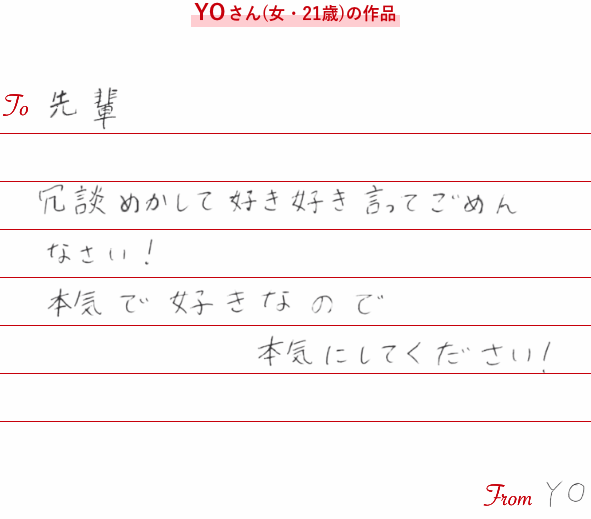 YOさん(女・21歳)の作品
To 先輩
冗談めかして好き好き言ってごめん
なさい!
本気で好きなので
本気にしてください!
From YO